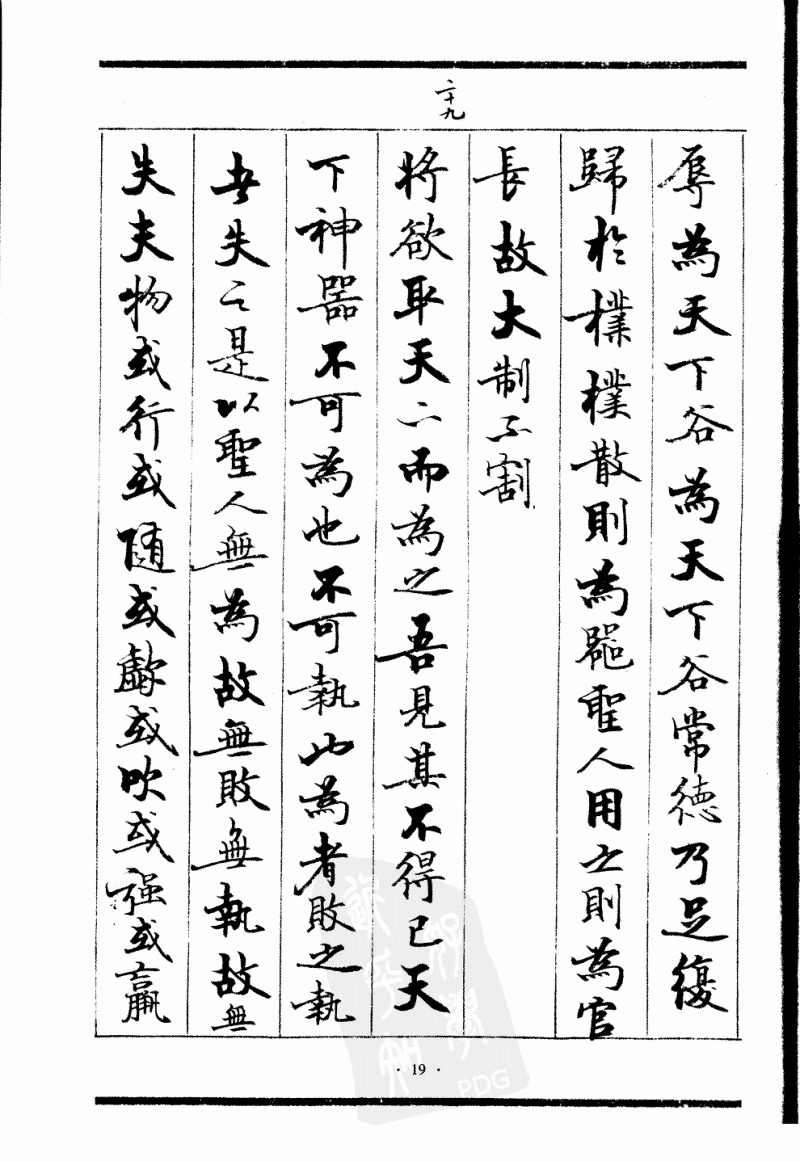 二十九
辱為天下谷為天下谷常德乃足復
歸於樸樸散則為器聖人用之則為官
長故大制不割
將欲取天下而為之吾見其不得已天
下神器不可為也不可執也為者敗之執
者失之是以聖人無為故無敗無執故無
失夫物或行或隨或歔或吹或强或羸
· 19 ·
PDG